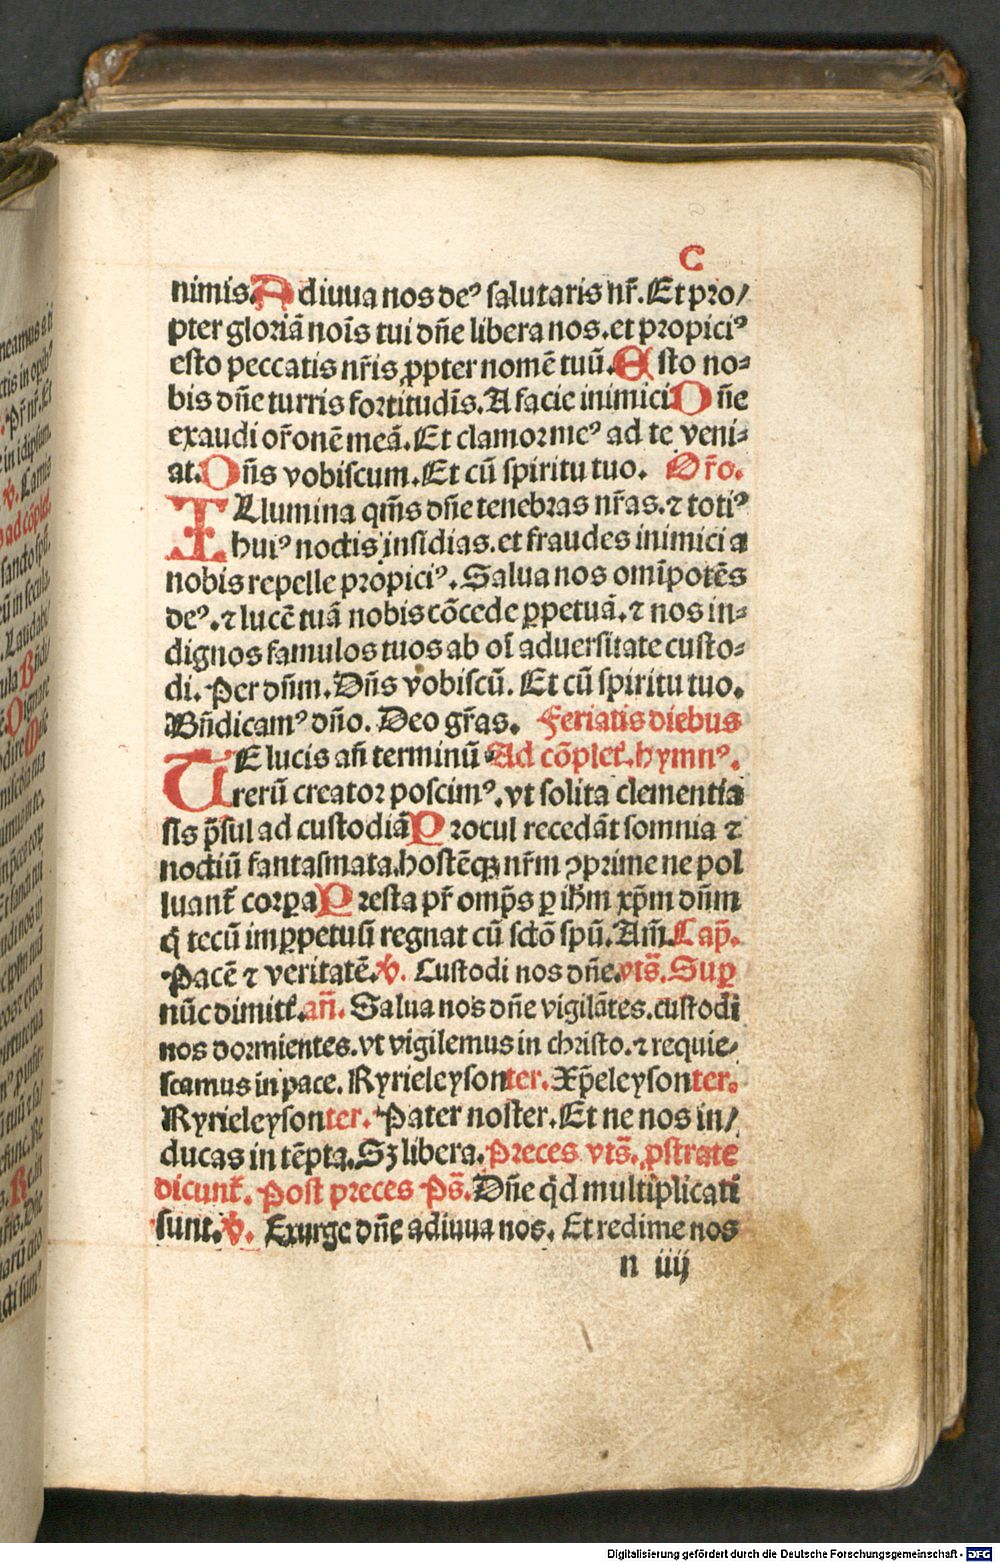 C
nimis. Adiuua nos deꝰ salutaris nr̄. Et pro/
pter gloriā noīs tui dn̄e libera nos. et propiciꝰ
esto peccatis nr̄is ꝓpter nomē tuū. Esto no⸗
bis dn̄e turris fortitudīs. A facie inimici Dn̄e
exaudi or̄onē meā. Et clamor meꝰ ad te veni⸗
at. Dn̄s vobiscum. Et cū spiritu tuo. Or̄o.
Illumina qm̄s dn̄e tenebras nr̄as. ⁊ totiꝰ
huiꝰ noctis insidias. et fraudes inimici a
nobis repelle propiciꝰ. Salua nos omīpotēs
deꝰ. ⁊ lucē tuā nobis cōcede ꝑpetuā. ⁊ nos in⸗
dignos famulos tuos ab oī aduersitate custo⸗
di. Per dn̄m. Dn̄s vobiscū. Et cū spiritu tuo.
Bn̄dicamꝰ dn̄o. Deo gr̄as. Feriatis diebus
TE lucis an̄ terminū Ad cōplet̄. hymnꝰ.
rerū creator poscimꝰ. vt solita clementia
sis p̄sul ad custodiā Procul recedāt somnia ⁊
noctiū fantasmata. hostēqꝫ nr̄m ꝯprime ne pol
luant̄ corꝑa Presta pr̄ omp̄s ꝑ ih̄m xp̄m dn̄m
q̄ tecū imꝑpetuū regnat cū sctō spū. Am̄. Cap̄.
Pacē ⁊ veritatē. ℣. Custodi nos dn̄e. vts̄. Suꝑ
nūc dimitt̄. an̄. Salua nos dn̄e vigilātes. custodi
nos dormientes. vt vigilemus in christo. ⁊ requie/
scamus in pace. Kyrieleyson ter. Xp̄eleyson ter.
Kyrieleyson ter. Pater noster. Et ne nos in/
ducas in tēpta. Sꝫ libera. Preces vts̄. ꝓstrate
dicunt̄. Post preces Ps̄. Dn̄e qd̄ multiplicati
sunt. ℣. Exurge dn̄e adiuua nos. Et redime nos
n iiij
Digitalisierung gefördert durch die Deutsche Forschungsgemeinschaft - DFG